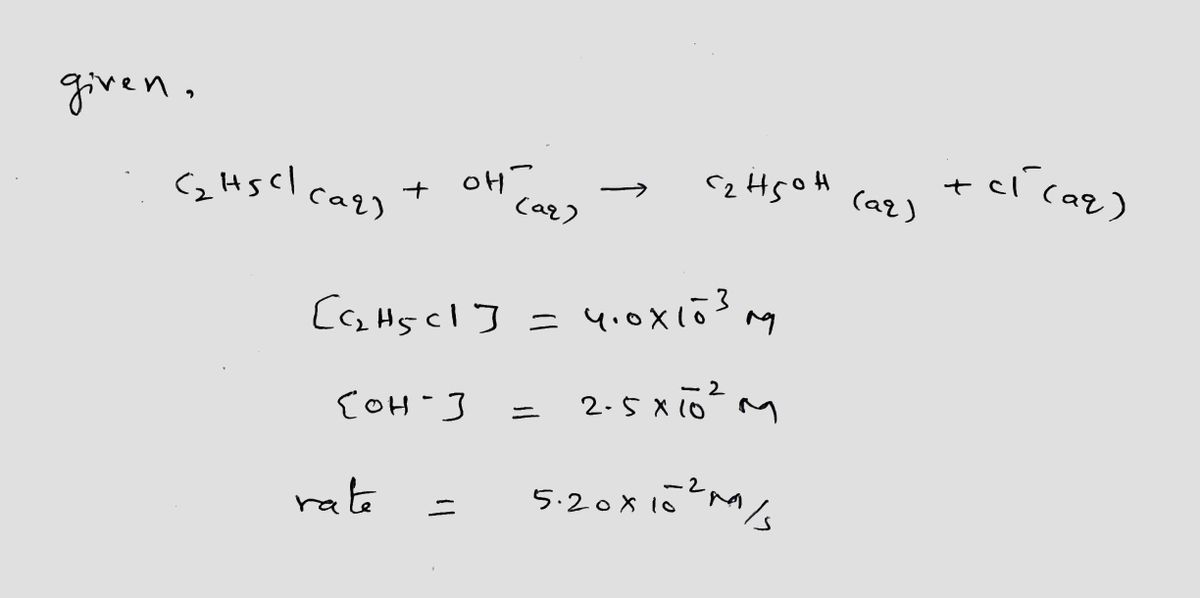 given,
C₂H₅Cl (aq) + OH⁻ (aq) → C₂H₅OH (aq) + Cl⁻ (aq)
[C₂H₅Cl] = 4.0 × 10⁻³ M
[OH⁻] = 2.5 × 10⁻² M
rate = 5.20 × 10⁻² M/s